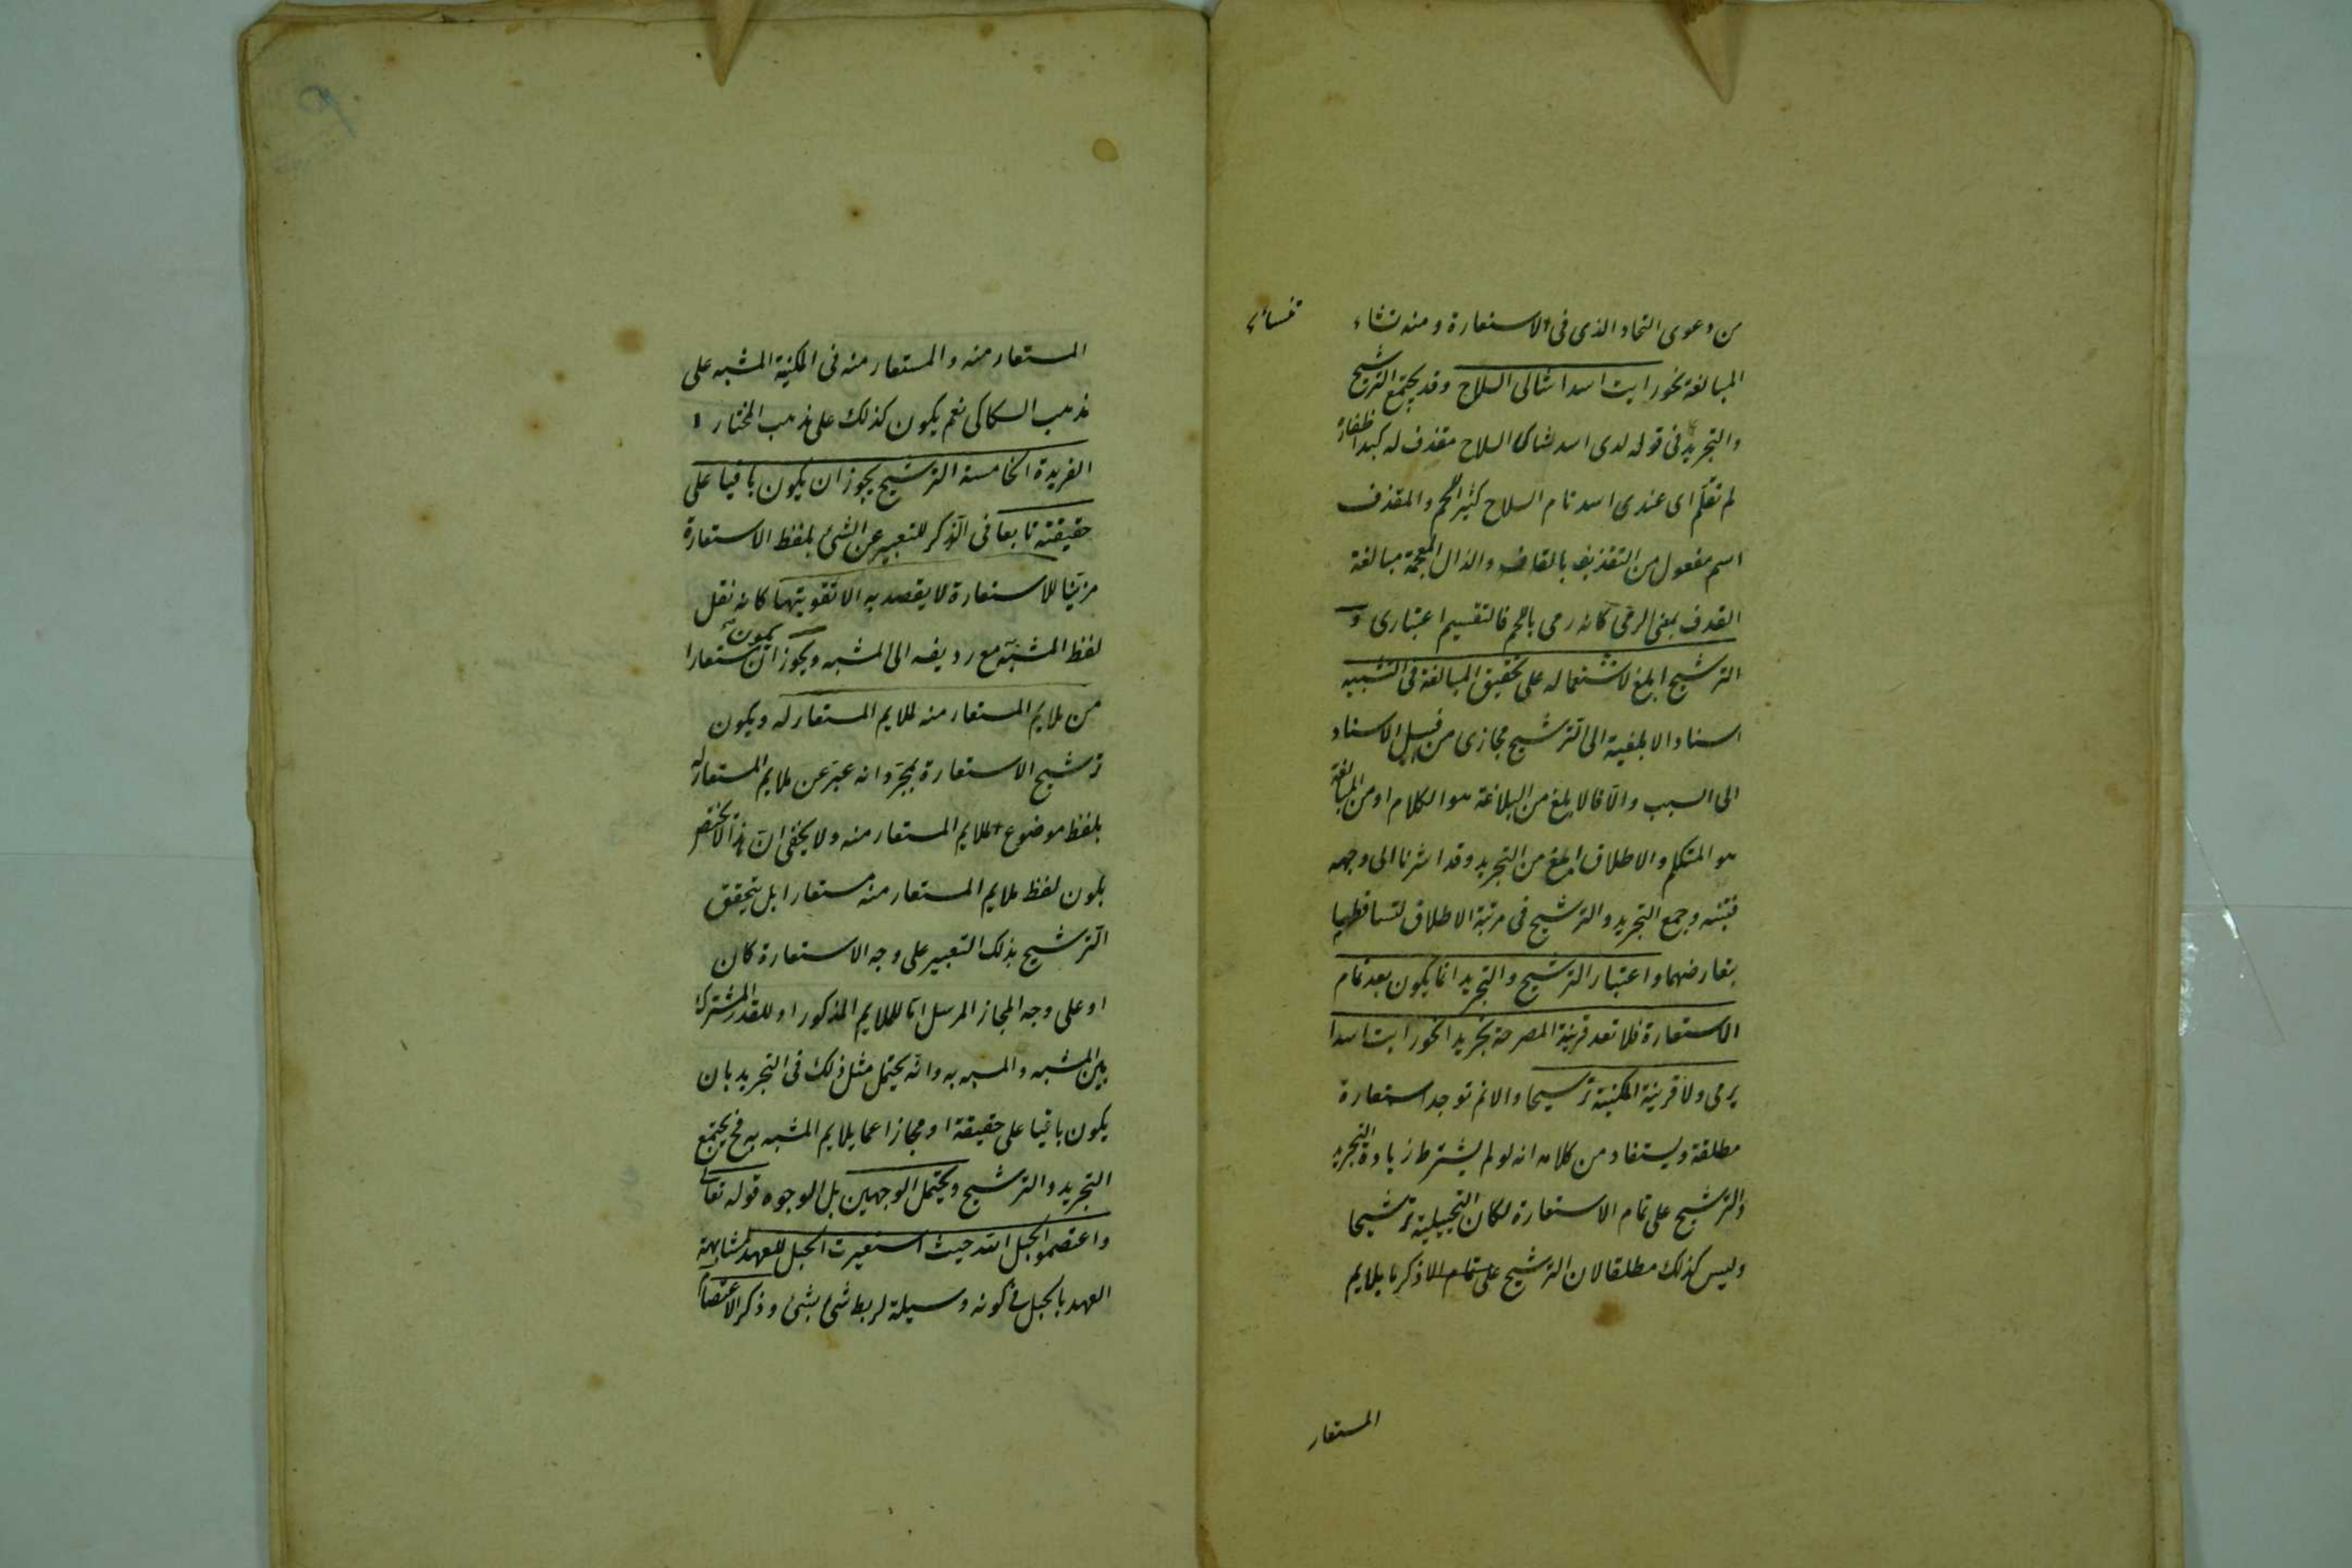 من دعوى اتحاد الذى فى الاستعارة و منه تشاء
المبالغة نحو رايت اسدا شاكى السلاح وقد يجتمع الترشيح
والتجريد فى قوله لدى اسد شاكى السلاح مقذف له لبد اظفاره
لم تقلم اى عندى اسد تام السلاح كثير اللحم والمقذف
اسم مفعول من التقذيف بالقاف والذال المعجمة مبالغة
القذف بمعنى الرمى كانه رمى باللحم فالتقسيم اعتبارى و
الترشيح ابلغ لاشتماله على تحقيق المبالغة فى التشبيه
اسناد الابلغية الى الترشيح مجازى من قبيل الاسناد
الى السبب والا فالابلغ من البلاغة هو الكلام او من المبالغة
هو المتكلم والاطلاق ابلغ من التجريد وقد اشرنا الى وجهه
فتنبه وجمع التجريد والترشيح فى مرتبة الاطلاق لتساقطهما
بتعارضهما واعتبار الترشيح والتجريد انما يكون بعد تمام
الاستعارة فلا تعد قرينة المصرحة تجريدا نحو رايت اسدا
يرمى ولا قرينة المكنية ترشيحا والا لم توجد استعارة
مطلقة ويستفاد من كلامه انه لو لم يشترط زيادة التجريد
والترشيح على تمام الاستعارة لكان التخييلية ترشيحا
وليس كذلك مطلقا لان الترشيح على تمام الا ذكر ما يلايم
المستعار
المستعار منه والمستعار منه فى المكنية المشبه على
مذهب السكاكى نعم يكون كذلك على مذهب المختار
الفريدة الخامسة الترشيح يجوز ان يكون باقيا على
حقيقته تابعا فى الذكر للتعبير عن الشئ بلفظ الاستعارة
مزينا للاستعارة لا يقصد به الا تقويتها كانه نقل
لفظ المشبه مع رديفه الى المشبه ويجوز ان يكون مستعارا
من ملايم المستعار منه لملايم المستعار له ويكون
ترشيح الاستعارة بمجرد انه عبر عن ملايم المستعار له
بلفظ موضوع لملايم المستعار منه ولا يخفى ان هذا لا يختص
بكون لفظ ملايم المستعار منه مستعارا بل يتحقق
الترشيح بذلك التعبير على وجه الاستعارة كان
او على وجه المجاز المرسل اما للملايم المذكور او للقدر المشترك
بين المشبه والمشبه به وانه يحتمل مثل ذلك فى التجريد بان
يكون باقيا على حقيقة او مجازا عما يلايم المشبه به فح يجتمع
التجريد والترشيح ويحتمل الوجهين بل الوجوه قوله تعالى
واعتصموا بحبل الله حيث استعيرت الحبل للعهد لمشابهة
العهد بالحبل فى كونه وسيلة لربط شئ بشئ وذكر الاعتصام